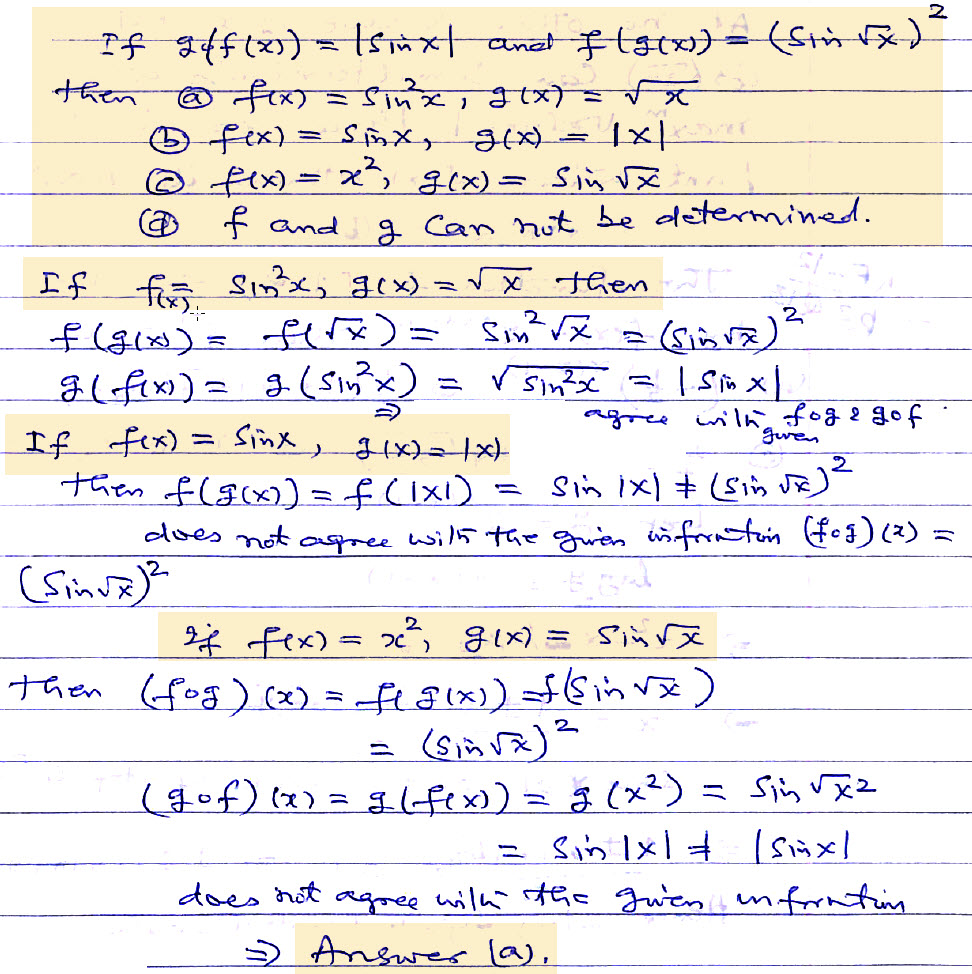 If g(f(x)) = |sin x| and f(g(x)) = (sin √x)²
then ⓐ f(x) = sin²x, g(x) = √x
ⓑ f(x) = sin x, g(x) = |x|
ⓒ f(x) = x², g(x) = sin √x
ⓓ f and g can not be determined.
If f(x) = sin²x, g(x) = √x then
f(g(x)) = f(√x) = sin²√x = (sin √x)²
g(f(x)) = g(sin²x) = √sin²x = |sin x|
⇒ agree with given fog & gof.
If f(x) = sin x, g(x) = |x|
then f(g(x)) = f(|x|) = sin |x| ≠ (sin √x)²
does not agree with the given infrmtion (fog)(x) =
(sin √x)²
If f(x) = x², g(x) = sin √x
then (fog)(x) = f(g(x)) = f(sin √x)
= (sin √x)²
(gof)(x) = g(f(x)) = g(x²) = sin √x²
= sin |x| ≠ |sin x|
does not agree with the given infrmtion
⇒ Answer (a).